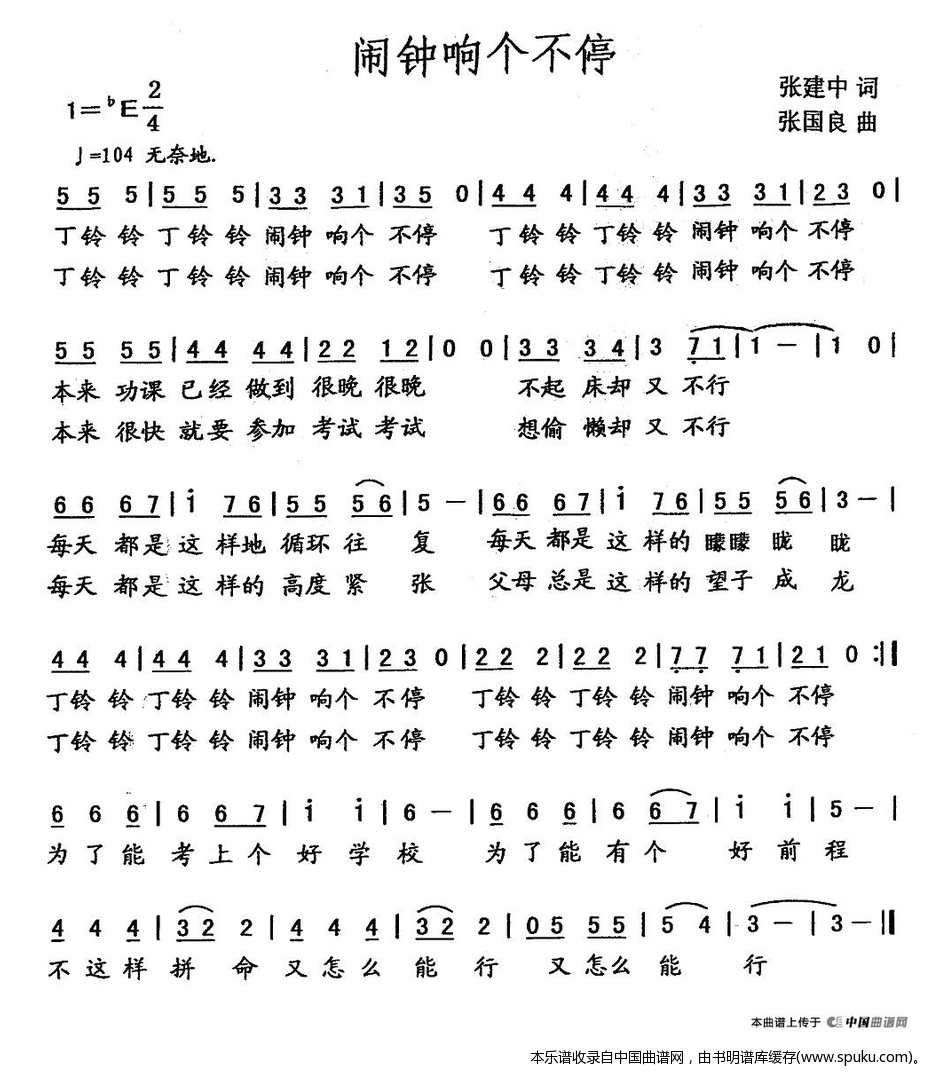 闹钟响个不停
张建中 词
1=ᵇE 2/4
张国良 曲
♩=104 无奈地.
5 5 5 | 5 5 5 | 3 3 3 1 | 3 5 0 | 4 4 4 | 4 4 4 | 3 3 3 1 | 2 3 0 |
丁铃 铃 丁铃 铃 闹钟 响个 不停 丁铃 铃 丁铃 铃 闹钟 响个 不停
丁铃 铃 丁铃 铃 闹钟 响个 不停 丁铃 铃 丁铃 铃 闹钟 响个 不停
5 5 5 5 | 4 4 4 4 | 2 2 1 2 | 0 0 | 3 3 3 4 | 3 7̣ 1 | 1 – | 1 0 |
本来 功课 已经 做到 很晚 很晚 不起 床却 又 不行
本来 很快 就要 参加 考试 考试 想偷 懒却 又 不行
6 6 6 7 | i 7 6 | 5 5 5 6 | 5 – | 6 6 6 7 | i 7 6 | 5 5 5 6 | 3 – |
每天 都是 这 样地 循环 往 复 每天 都是 这 样的 矇矇 眬 眬
每天 都是 这 样的 高度 紧 张 父母 总是 这 样的 望子 成 龙
4 4 4 | 4 4 4 | 3 3 3 1 | 2 3 0 | 2 2 2 | 2 2 2 | 7̣ 7̣ 7̣ 1 | 2 1 0 :‖
丁铃 铃 丁铃 铃 闹钟 响个 不停 丁铃 铃 丁铃 铃 闹钟 响个 不停
丁铃 铃 丁铃 铃 闹钟 响个 不停 丁铃 铃 丁铃 铃 闹钟 响个 不停
6 6 6 | 6 6 7 | i i | 6 – | 6 6 6 | 6 6 7 | i i | 5 – |
为 了 能 考 上 个 好 学 校 为 了 能 有 个 好 前 程
4 4 4 | 3 2 2 | 4 4 4 | 3 2 2 | 0 5 5 5 | 5 4 | 3 – | 3 – ‖
不 这 样 拼 命 又 怎 么 能 行 又 怎 么 能 行
本曲谱上传于 中国曲谱网
本乐谱收录自中国曲谱网，由书明谱库缓存(www.spuku.com)。